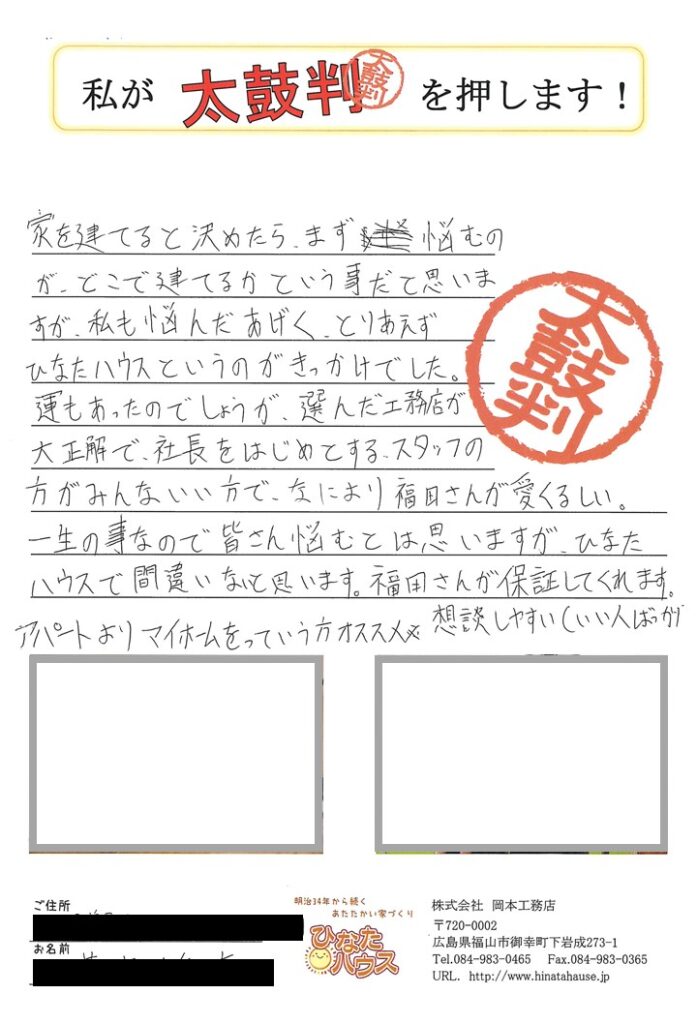 私が 太鼓判 太鼓判 を押します！
家を建てると決めたら、まず 悩むの
が、どこで建てるかという事だと思いま
すが、私も悩んだあげく、とりあえず
ひなたハウスというのがきっかけでした。
運もあったのでしょうが、選んだ工務店が
大正解で、社長をはじめとする、スタッフの
方がみんないい方で、なにより福田さんが愛くるしい。
一生の事なので皆さん悩むとは思いますが、ひなた
ハウスで間違いないと思います。福田さんが保証してくれます。
アパートよりマイホームをっていう方オススメ
想談しやすい(いい人ばっか)
太鼓判
ご住所
お名前
明治34年から続く
あたたかい家づくり
ひなた
ハウス
株式会社 岡本工務店
〒720-0002
広島県福山市御幸町下岩成273-1
Tel.084-983-0465 Fax.084-983-0365
URL. http://www.hinatahause.jp